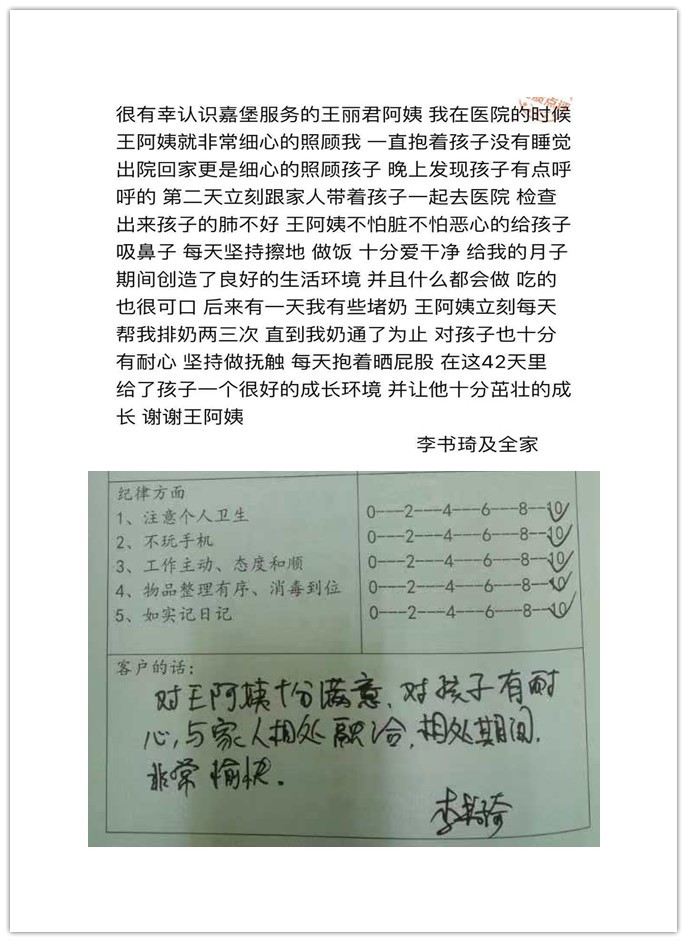 很有幸认识嘉堡服务的王丽君阿姨 我在医院的时候
王阿姨就非常细心的照顾我 一直抱着孩子没有睡觉
出院回家更是细心的照顾孩子 晚上发现孩子有点呼
呼的 第二天立刻跟家人带着孩子一起去医院 检查
出来孩子的肺不好 王阿姨不怕脏不怕恶心的给孩子
吸鼻子 每天坚持擦地 做饭 十分爱干净 给我的月子
期间创造了良好的生活环境 并且什么都会做 吃的
也很可口 后来有一天我有些堵奶 王阿姨立刻每天
帮我排奶两三次 直到我奶通了为止 对孩子也十分
有耐心 坚持做抚触 每天抱着晒屁股 在这42天里
给了孩子一个很好的成长环境 并让他十分茁壮的成
长 谢谢王阿姨
李书琦及全家
纪律方面
1、注意个人卫生 0---2---4----6---8---10
2、不玩手机 0---2---4----6---8---10
3、工作主动、态度和顺 0---2---4----6---8---10
4、物品整理有序、消毒到位 0---2---4----6---8---10
5、如实记日记 0---2---4----6---8---10
客户的话:
对王阿姨十分满意、对孩子有耐
心,与家人相处融洽,相处期间,
非常愉快.
李书琦